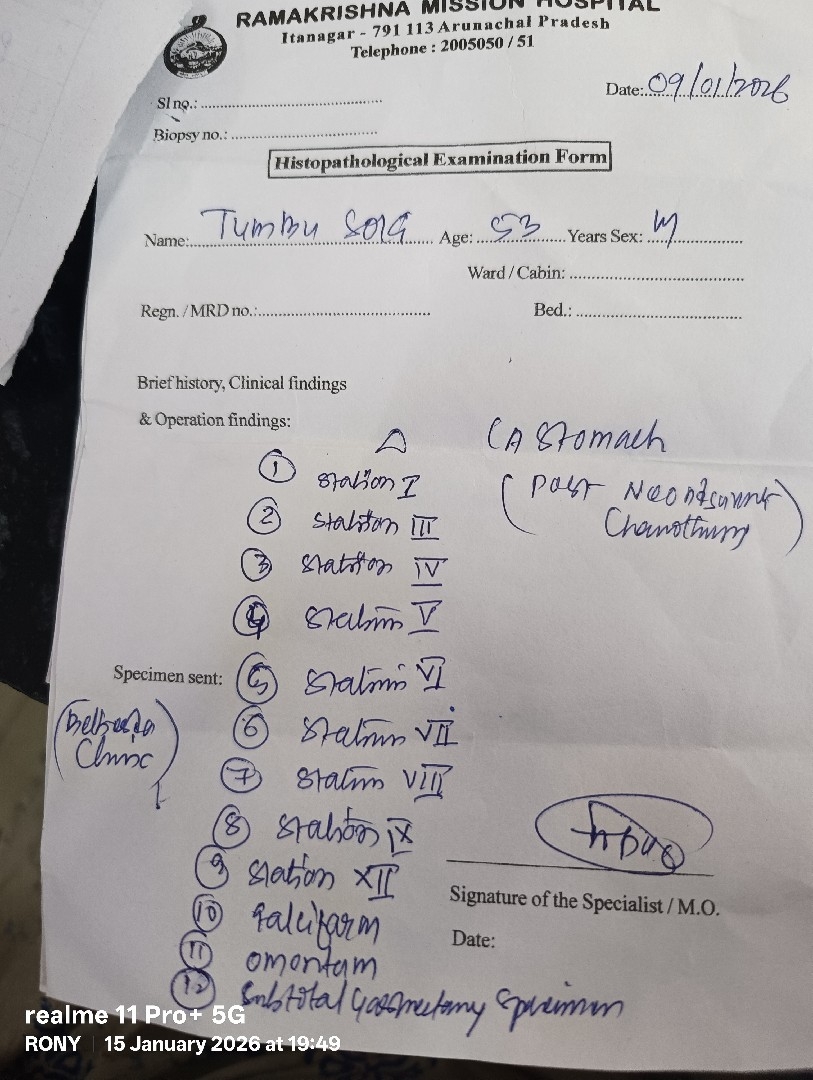 RAMAKRISHNA MISSION HOSPITAL
Itanagar - 791 113 Arunachal Pradesh
Telephone : 2005050 / 51
Sl no.:
Date: 09/01/2026
Biopsy no.:
Histopathological Examination Form
Name: Tumbu Age: 53 Years Sex: M
Ward / Cabin:
Regn. / MRD no.:
Bed.:
Brief history, Clinical findings
& Operation findings:
△ CA Stomach
(Post
① Station I
② Station III
③ Station IV
④ Station V
Specimen sent: ⑤ Station VI
⑥ Station VII
Clinic
⑦ Station VIII
⑧ Station IX
⑨ Station XII
Signature of the Specialist / M.O.
⑩ Falcifarm
Date:
⑪ omentam
⑫ Subtotal Gastrectomy Specimen
realme 11 Pro+ 5G
RONY 15 January 2026 at 19:49